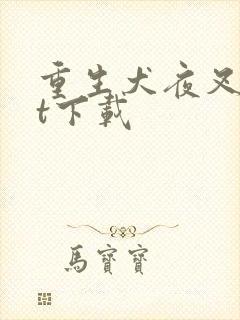 重生犬夜叉
t下載
馬寶寶